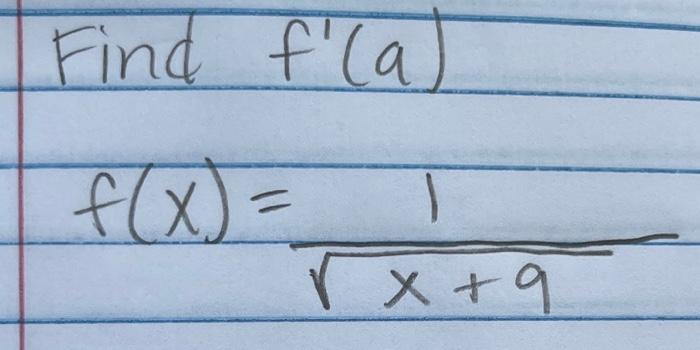 Find f'(a)
f(x) = 1 / √(x + 9)